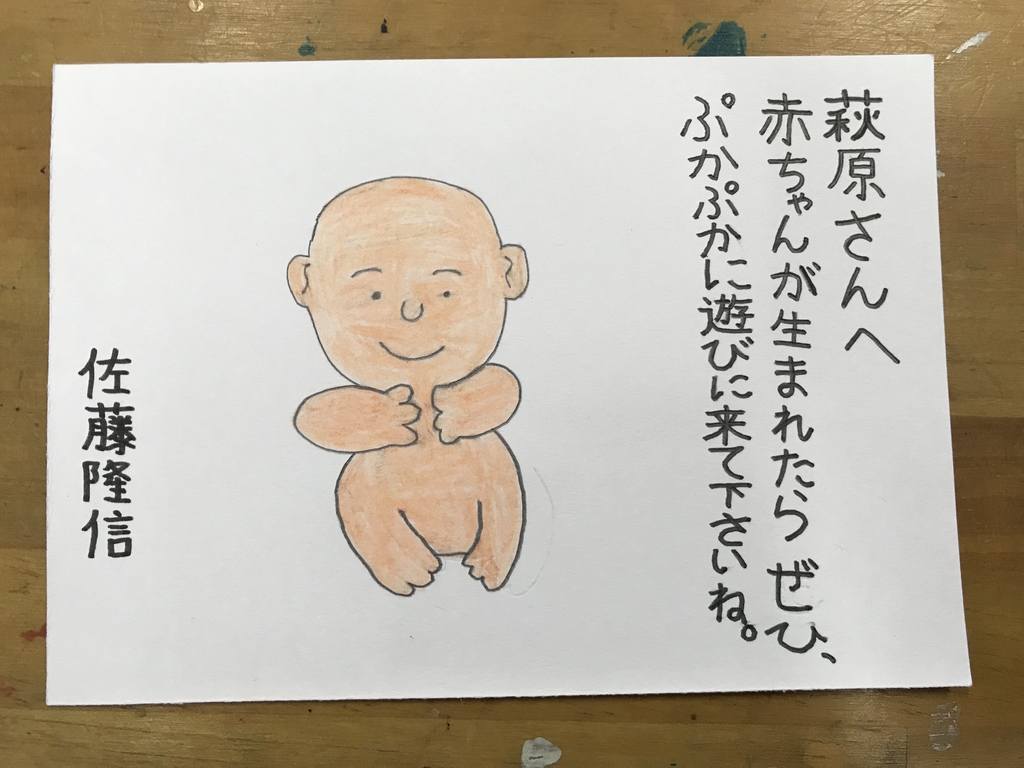 萩原さんへ
赤ちゃんが生まれたらぜひ、
ぷかぷかに遊びに来て下さいね。
佐藤隆信